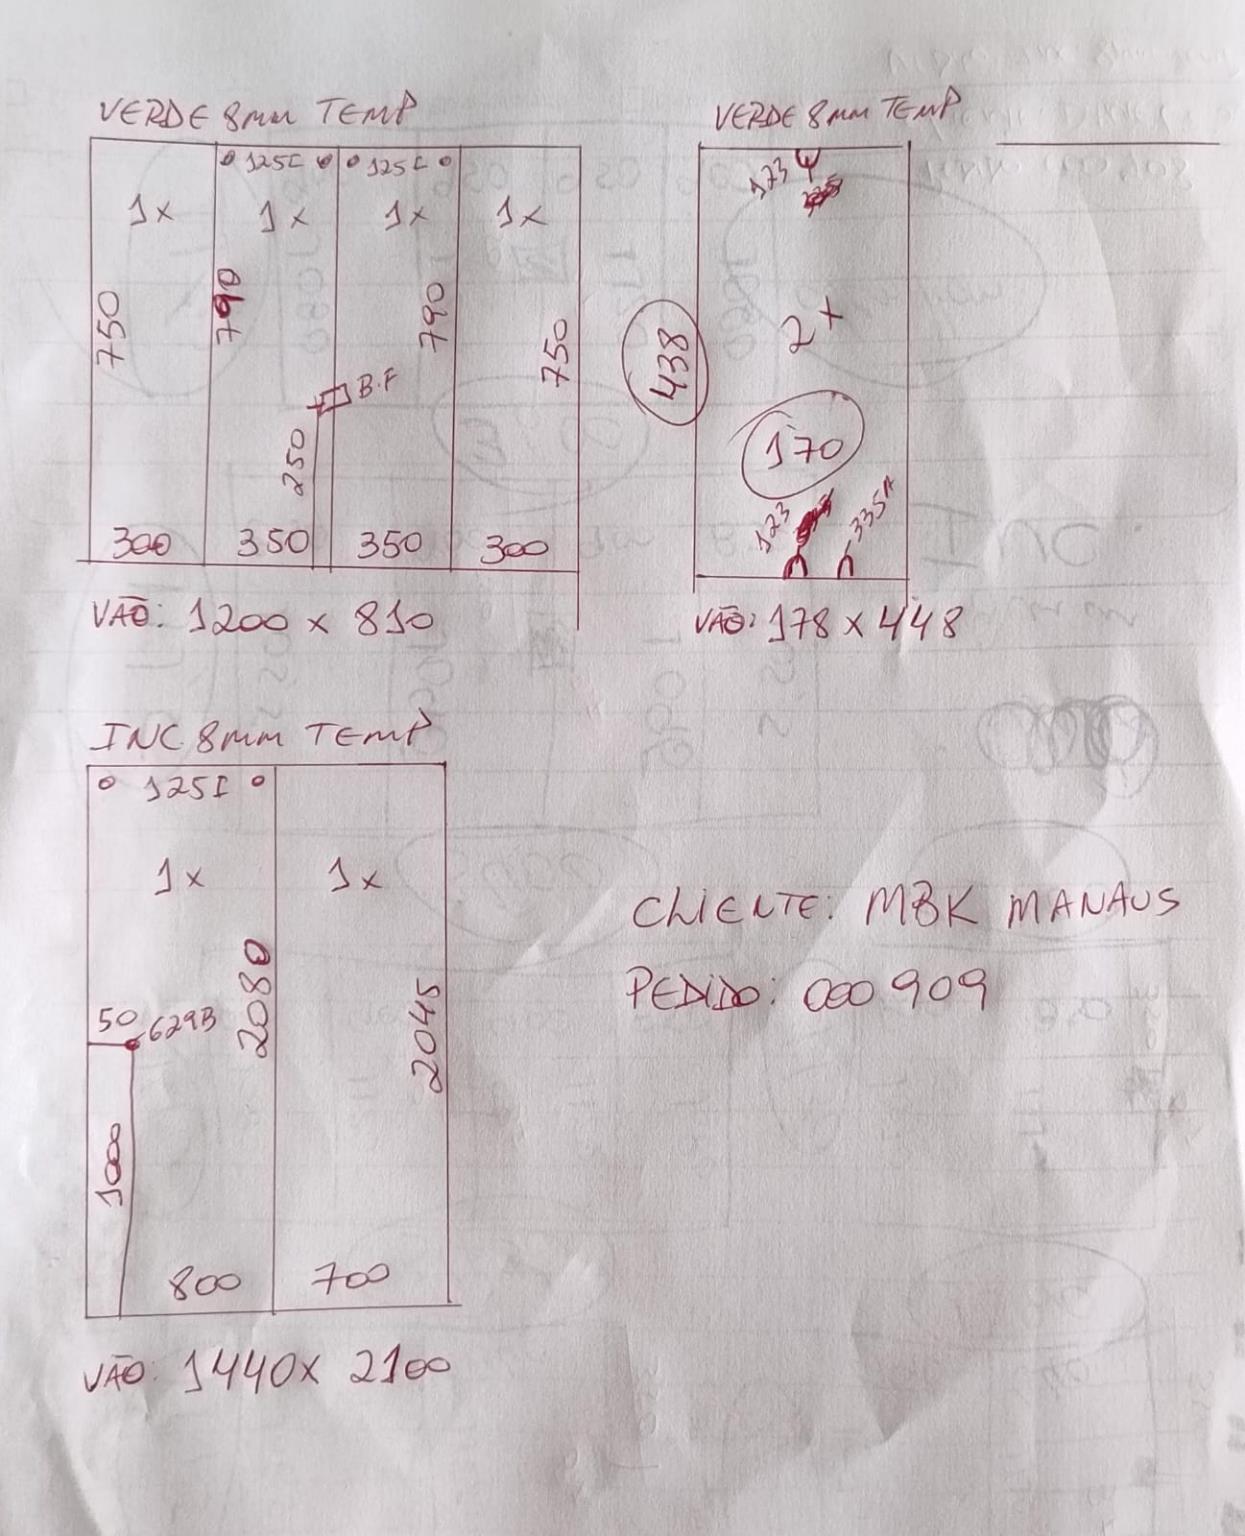 VERDE 8mm TEMP
125I 125I
1x 1x 1x 1x
750 790 790 750
B.F
250
300 350 350 300
VÃO: 1200 x 810
VERDE 8mm TEMP
123
2x
438
170
123 335A
VÃO: 178 x 448
INC 8mm TEMP
125I
1x 1x
2080 2045
50 629B
1000
800 700
VÃO: 1440 x 2100
CLIENTE: MBK MANAUS
PEDIDO: 000909